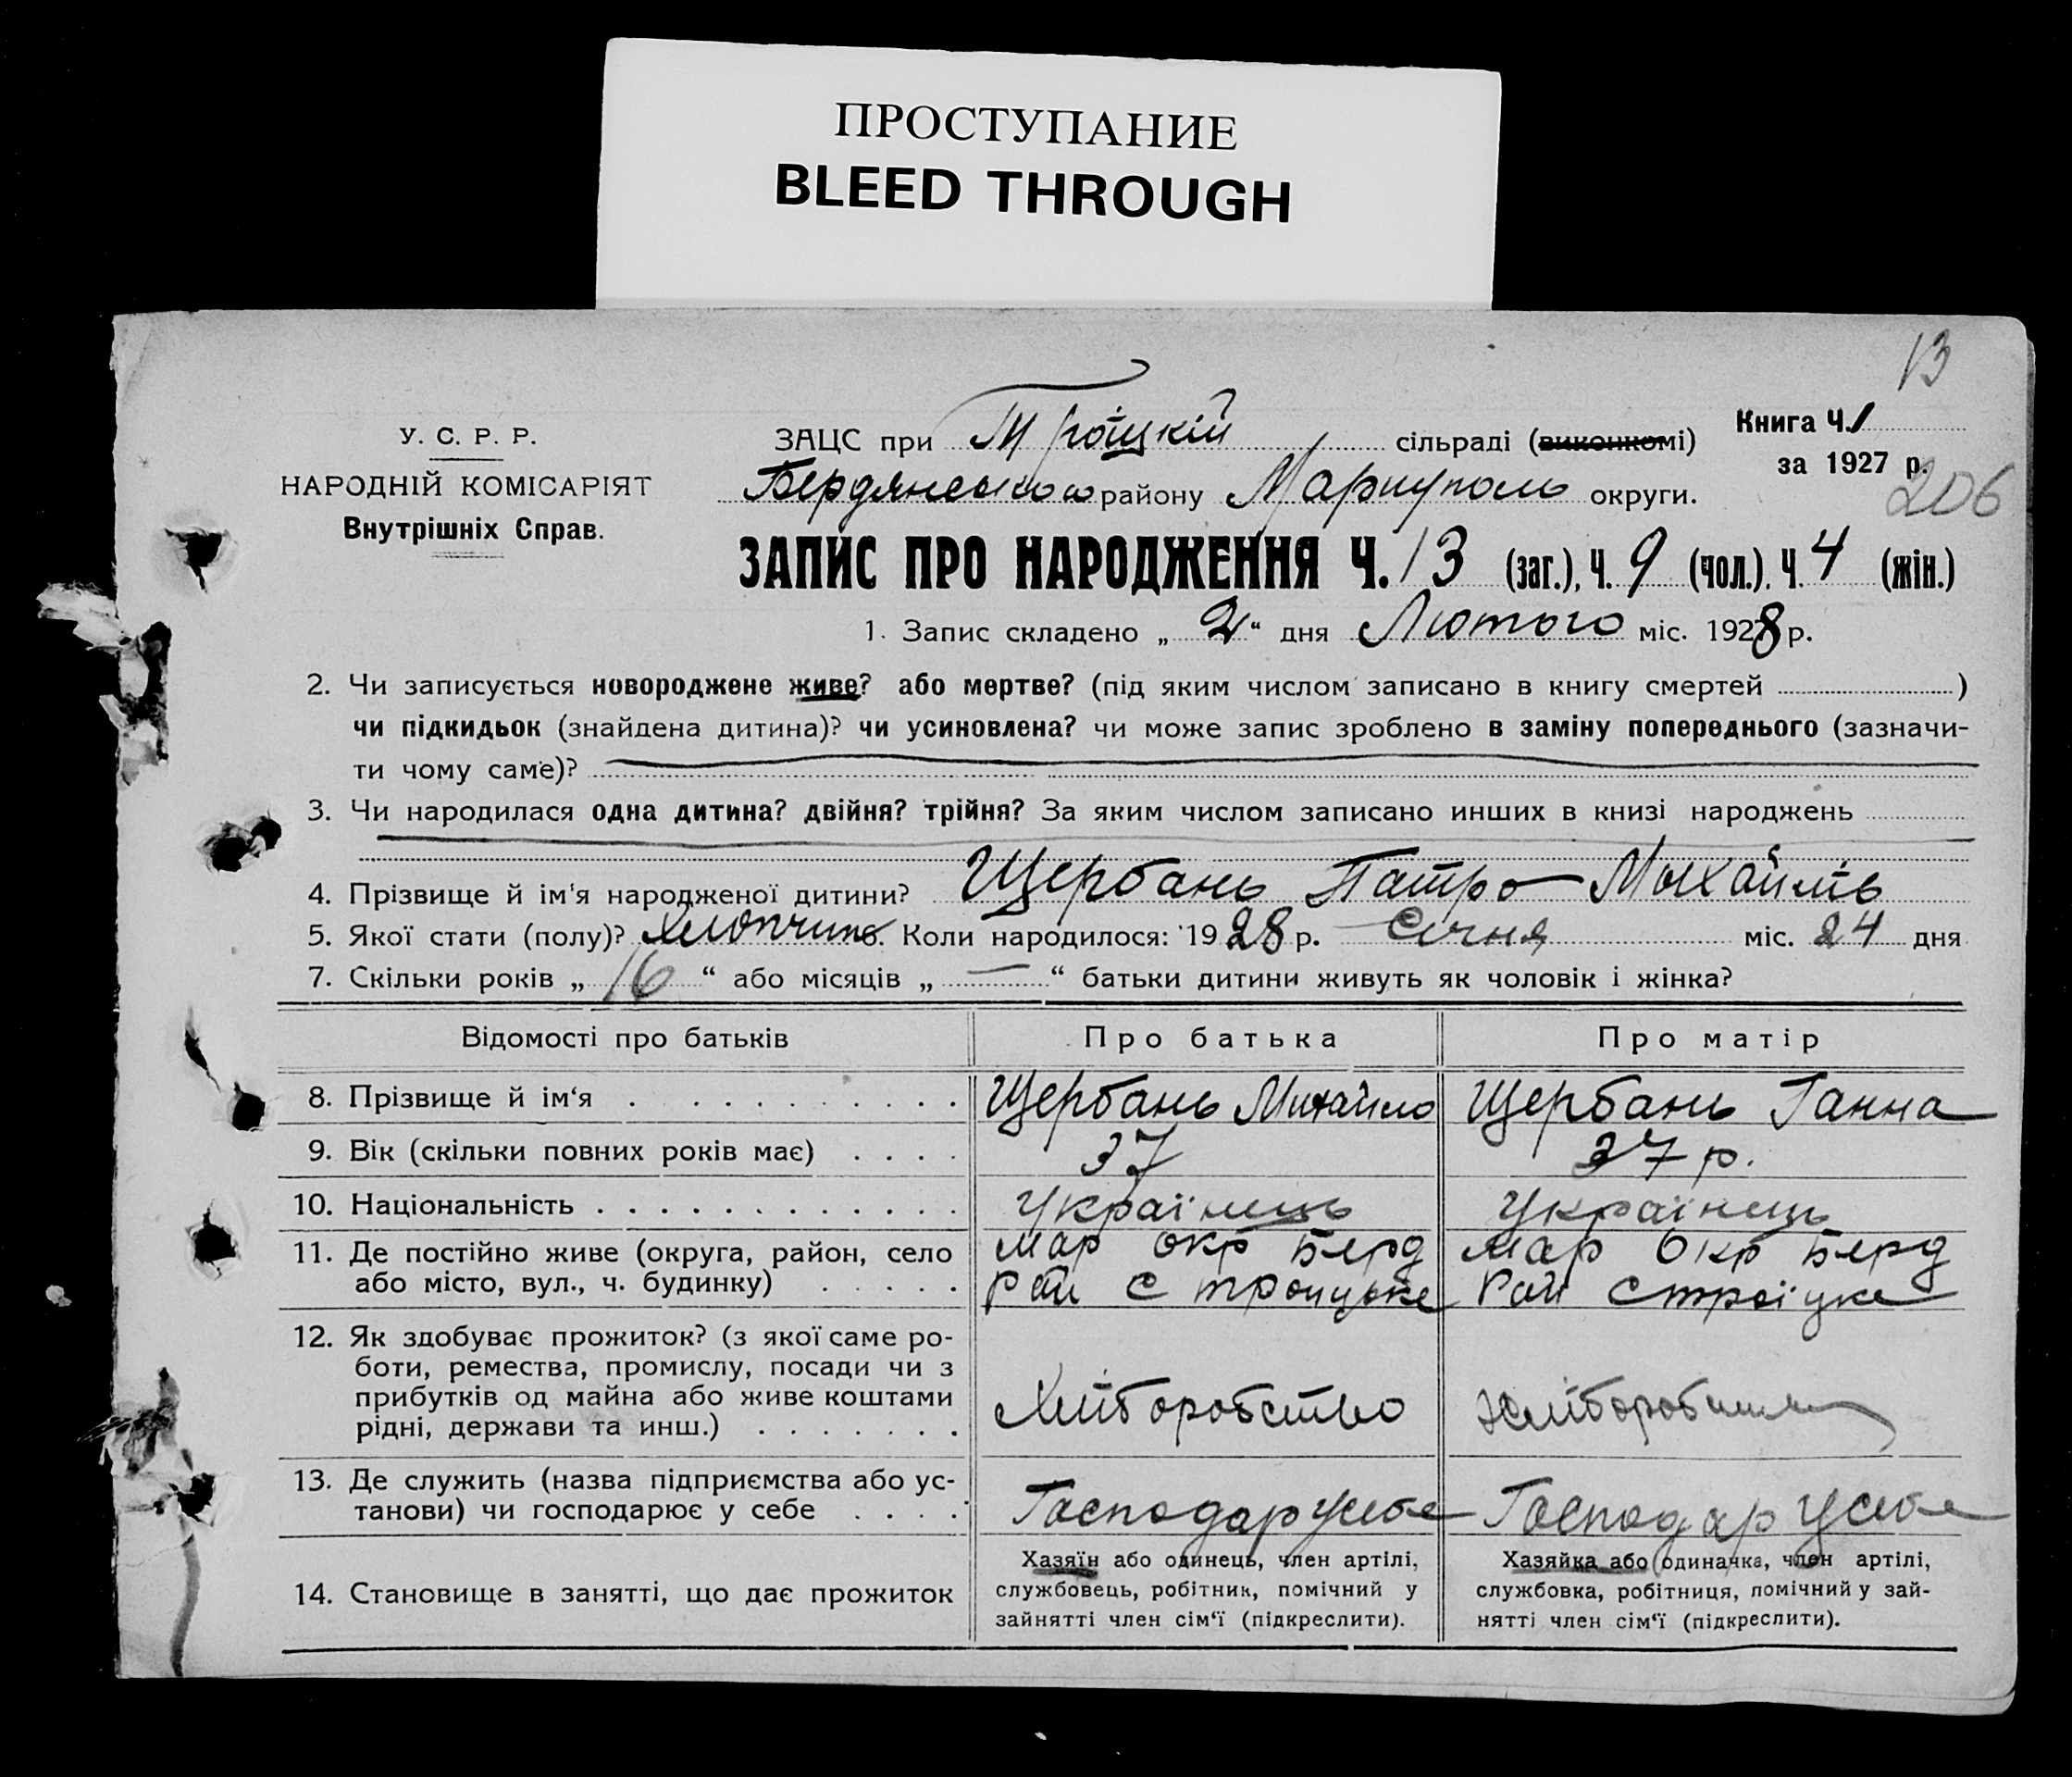 ПРОСТУПАНИЕ
BLEED THROUGH
13
У. С. Р. Р.
НАРОДНІЙ КОМІСАРІЯТ
Внутрішніх Справ.
ЗАЦС при Троїцкій сільраді (виконкомі)
Бердянського району Маріуполь округи.
Книга Ч. 1
за 1927 р.
206
ЗАПИС ПРО НАРОДЖЕННЯ Ч. 13 (заг.), Ч. 9 (чол.), Ч. 4 (жін.)
1. Запис складено „ 2 “ дня Лютого міс. 1928 р.
2. Чи записується новороджене живе? або мертве? (під яким числом записано в книгу смертей )
чи підкидьок (знайдена дитина)? чи усиновлена? чи може запис зроблено в заміну попереднього (зазначи-
ти чому саме)?
3. Чи народилася одна дитина? двійня? трійня? За яким числом записано инших в книзі народжень
4. Прізвище й ім‘я народженої дитини? Щербань Патро Михайлів
5. Якої стати (полу)? хлопчик 6. Коли народилося: 1928 р. Січня міс. 24 дня
7. Скільки років „ 16 “ або місяців „ — “ батьки дитини живуть як чоловік і жінка?
Відомості про батьків Про батька Про матір
8. Прізвище й ім‘я Щербань Михайло Щербань Ганна
9. Вік (скільки повних років має) 37 37 р.
10. Національність Українець Українець
11. Де постійно живе (округа, район, село Мар окр Берд Мар Окр Берд
або місто, вул., ч. будинку) Рай С Троицьке Рай С троїцке
12. Як здобуває прожиток? (з якої саме ро-
боти, ремества, промислу, посади чи з
прибутків од майна або живе коштами Хліборобство
рідні, держави та инш.)
13. Де служить (назва підприємства або ус-
танови) чи господарює у себе Господар усебе Господар усебе
14. Становище в занятті, що дає прожиток
Хазяїн або одинець, член артілі,
службовець, робітник, помічний у
зайнятті член сім‘ї (підкреслити).
Хазяйка або одиначка, член артілі,
службовка, робітниця, помічний у зай-
нятті член сім‘ї (підкреслити).